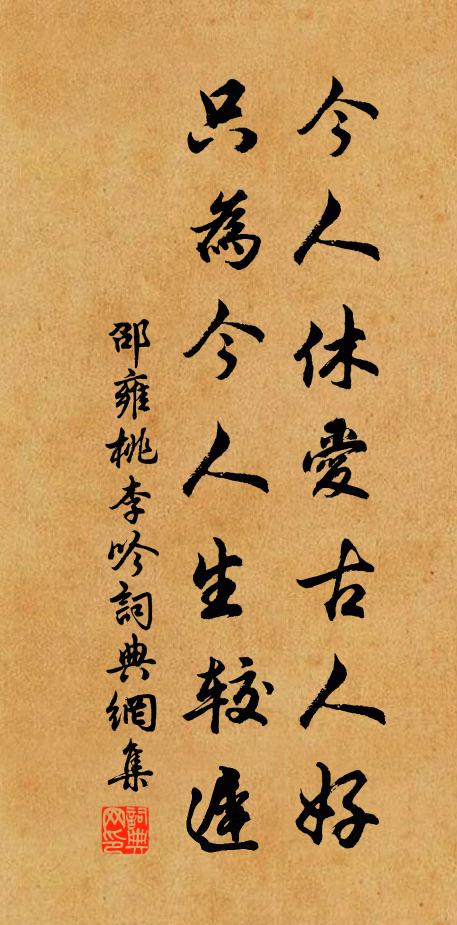 今人休愛古人好
只為今人生較遲
邵雍桃李吟詞典網集
詞典網印